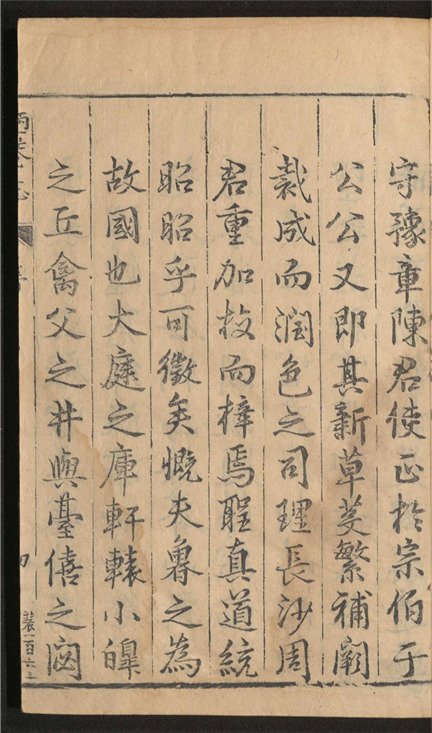 守豫章陳君使正於宗伯于
公公又即其新草芟繁補闕
裁成而潤色之司理長沙周
君重加挍而梓焉聖真道統
昭昭乎可徵矣慨夫魯之為
故國也大庭之庫軒轅小皥
之丘禽父之井與臺僖之閟